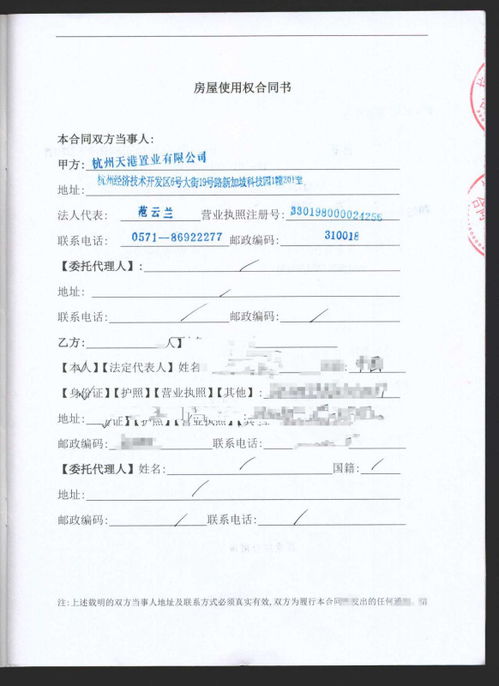 房屋使用权合同书
本合同双方当事人:
甲方: 杭州天港置业有限公司
地址: 杭州经济技术开发区6号大街19号路新加坡科技园1幢201室
法人代表: 范云兰 营业执照注册号: 330198000024256
联系电话: 0571—86922277 邮政编码: 310018
【委托代理人】: /
地址: /
联系电话: / 邮政编码: /
乙方: 人】
【本人】【法定代表人】姓名 中国
【身份证】【护照】【营业执照】【其他】:
地址: 证】【护照】【营业执照】【其
邮政编码: 联系电话:
【委托代理人】姓名: / 国籍: /
地址: /
邮政编码: / 联系电话: /
注:上述载明的双方当事人地址及联系方式必须真实有效,双方为履行本合同 发出的任何通